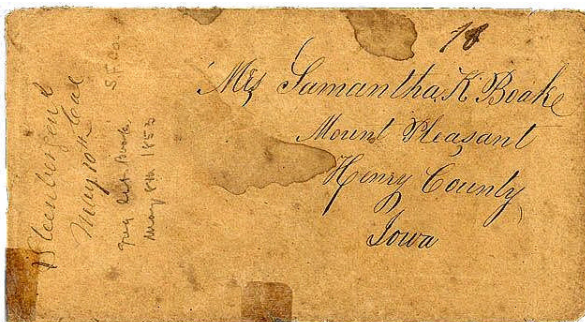 10
Mrs Samantha K. Boake
Mount Pleasant
Henry County
Iowa
Steinberger's
May 10th Cal
S.F. Ca.
May 8th 1853